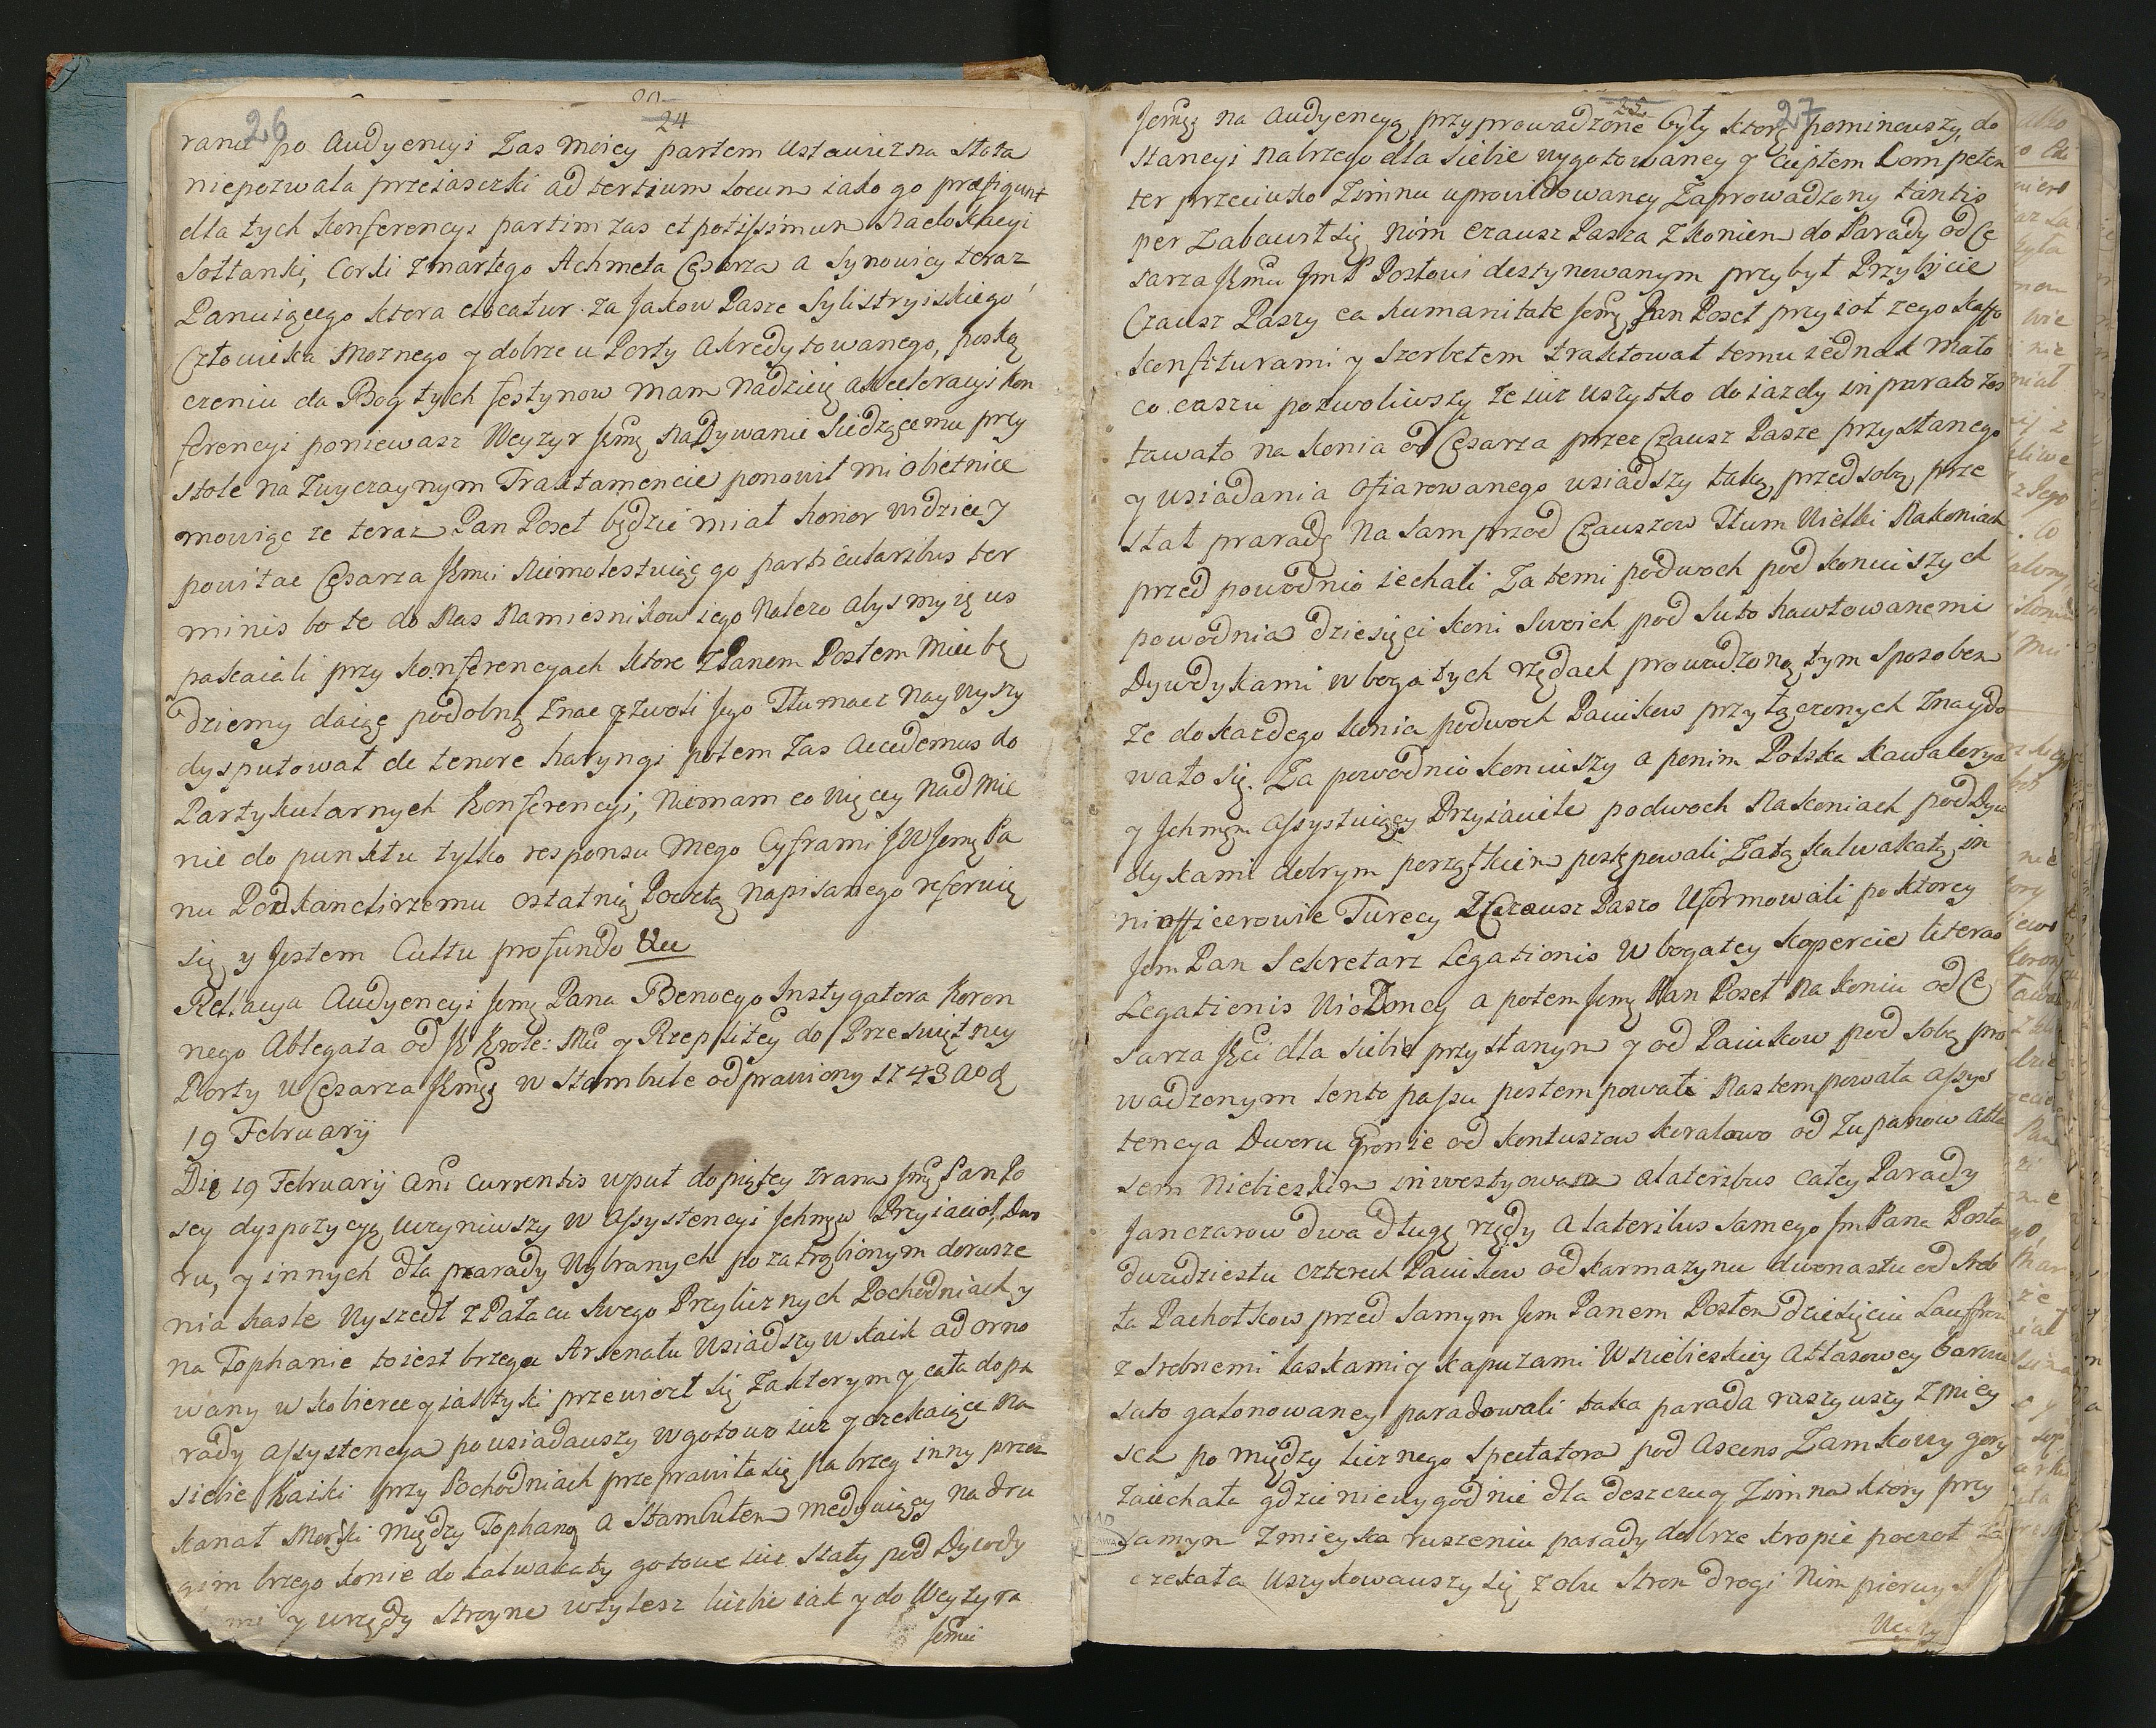 26
24
ranu po Audyencyi Zas moiey partem Ustawiczna Słota
niepozwala przeiaszczki ad tertium locum iako go præfigunt
dla tych Konferencyi partim zas et potissimum
Sołtanki, Corki zmarłego Achmeta Cesarza a Synowicy teraz
Panuiącego ktora elocatur za Jakow Pasze Sylistryiskiego
Człowieka moznego y dobrze u Porty akredytowanego, po skoą
czeniu da Bog tych festynow mam nadzieię akceleracyi Kon
ferencyi poniewasz Wezyr Jemę na Dywanie Siedzącemu przy
stole na Zwyczaynym Traktamencie ponowił mi obietnice
mowiąc ze teraz Pan Poseł będzie miał honor widziec y
powitac Cesarza Jemci niemolestuiąc go particularibus ter
minis bo te do Nas Namiesnikow iego nalezo abysmy ię us
pakaiali przy konferencyach ktore z Panem Posłem miec bę
dziemy daiąc podobną znac z woli Jego Tłumacz Naywyszy
dysputował de tenore haryngi potem zas accedemus do
Partykularnych Konferencyi, niemam co więcey nadmie
nic do punktu tylko responsu mego Cyframi JW Jemę Pa
nu Podkanclirzemu ostatnią Pocztą napisanego referuię
się y Jestem Cultu profundo &cc
Rellacya Audyencyi Jemę Pana Benoego Instygatora Koron
nego Ablegata od JK Krole: Mci y Rzepltey do Przeswiętney
Porty u Cesarza Jemę w Stambule odprawiony 1743 Ao d
19 February
Die 19 February Ani Currentis wpuł do piątey zrana Jmę Pan Po
seł dyspozycyę uczyniwszy w assystencyi Jchmę Przyiacioł, Dwo
ru, y innych dla prarady wybranych po zatrąbionym do rusze
nia hasle wyszedł z Pałacu swego Przy licznych Pochodniach y
na Tophanie to iest brzegu Arsenału wsiadszy w kaik adorno
wany w kobierce y iasłyki przewiozł się za ktorym y cała do pa
rady assystencya powsiadauszy w gotowo iuz y czekaiące na
siebie Kaiki przy Pochodniach przeprawiła się na brzeg inny przez
kanał Morski między Tophaną a Stambułem medyuiący na dru
gim brzego konie do kalwakaty gotowe iuz stały pod Dywdy
mi y w rzędy stroyne w tylesz liczbie iak y do Wezyra
Jemci
25
27
Jemę na Audyencyą przyprowadzone były ktorę pominouszy, do
stancyi na brzego dla siebie wygotowaney y ciepłem Competen
ter przeciwko Zimnu uprowidowaney Zaprowadzony tantis
per Zabawił się nim Czausz Pasza z koniem do Parady od Ce
sarza Jemci Jm P Posłowi destynowanym przybył Przybycie
Czausz Paszy ea humanitate Jemę Pan Poseł przyioł zego kaffo
konfiturami y Szerbetem traktował temu iednak mało
co czaszu pozwoliwszy ze iuz wszytko do iazdy in parato zos
tawało na konia od Cesarza przez Czausz Pasze przysłanego
y usiadania ofiarowanego usiadszy taką przed sobą prze
stał praradę na sam przod Czauszow Tłum Wielki na koniach
przed powodnio iechali Za temi podwoch pod koniuszych
powodnia dziesięci koni Swoich pod suto hawtowanemi
Dywdykami w bogatych rzędach prowadzoną tym sposobem
ze do kazdego konia podwoch Paiukow przyłączonych znaydo
wało się. Za powodnio koniuszy a po nim Polska kawalerya
y Jchmęm assystuiący Przyiaciele podwoch na koniach pod Dyw
dykami dobrym porządkiem postępowali Zatą kalwakatę in
ni officerowie Turecy z Czausz Paszo Uformowali po ktorey
Jem Pan Sekretarz Legationis w bogatey kopercie literas
Legationis wiozoney a potem Jemę Pan Poseł na koniu od Ce
sarza Jci dla siebie przysłanym y od Paiukow pod sobą pro
wadzonym lento passu postempował Nastempowała assys
tencya Dworu Gronie od kontuszow koralowo od Zupanow Atła
sem Niebieskim inwestyowana alateribus całey Parady
Janczarow dwa długę rzędy a lateribus samego Jm Pana Posła
dwudziestu czterech Paiukow od karmazynu dwonastu od Sreb
ła Pachołkow przed samym Jem Panem Posłem dziesięciu Lauffrow
z srebrnemi laskami y kapuzami w niebieskiey Atłasowey barwie
suto galonowaney paradowali taka parada ruszywszy z miey
sca po między licznego Spectatora pod Ascens Zamkowy gory
zaiechała gdzie niewygodnie dla deszczu y Zimna ktory przy
samym z mieyska ruszeniu parady dobrze kropic poczoł za
czekała uszykowauszy się z obu stron drogi nim pierwy